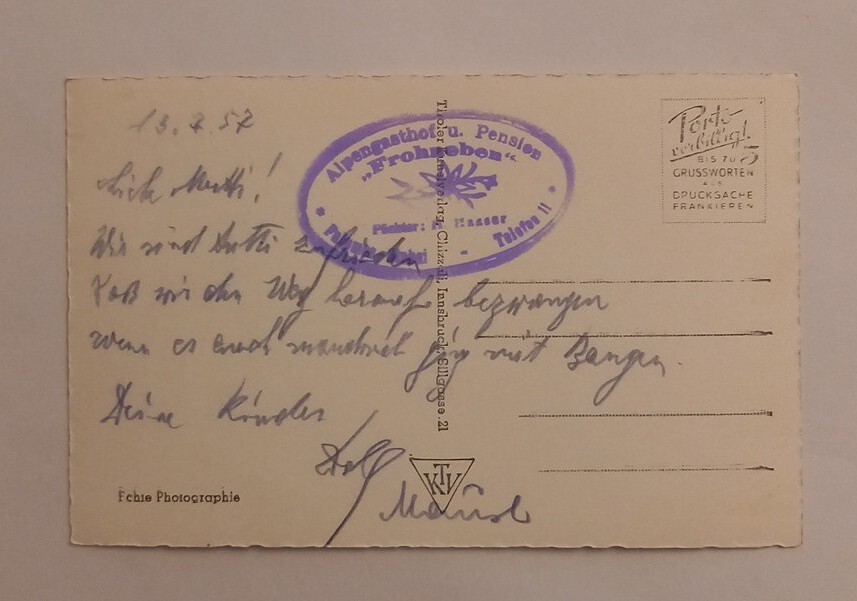 13. 7. 57
Liebe Mutti!
Wir sind zufrieden
Daß wir den Weg herauf bezwangen
wenn es auch manchmal ging mit Bangen.
Deine Kinder
Mausl
Alpengasthof u. Pension
„Frohneben“
Pächter: Hauser
Telefon 11
Tiroler Kunstverlag Chizzali, Innsbruck, Sillgasse 21
Porto
verbilligt!
BIS ZU 5
GRUSSWORTEN
ALS
DRUCKSACHE
FRANKIEREN
TKV
Echte Photographie